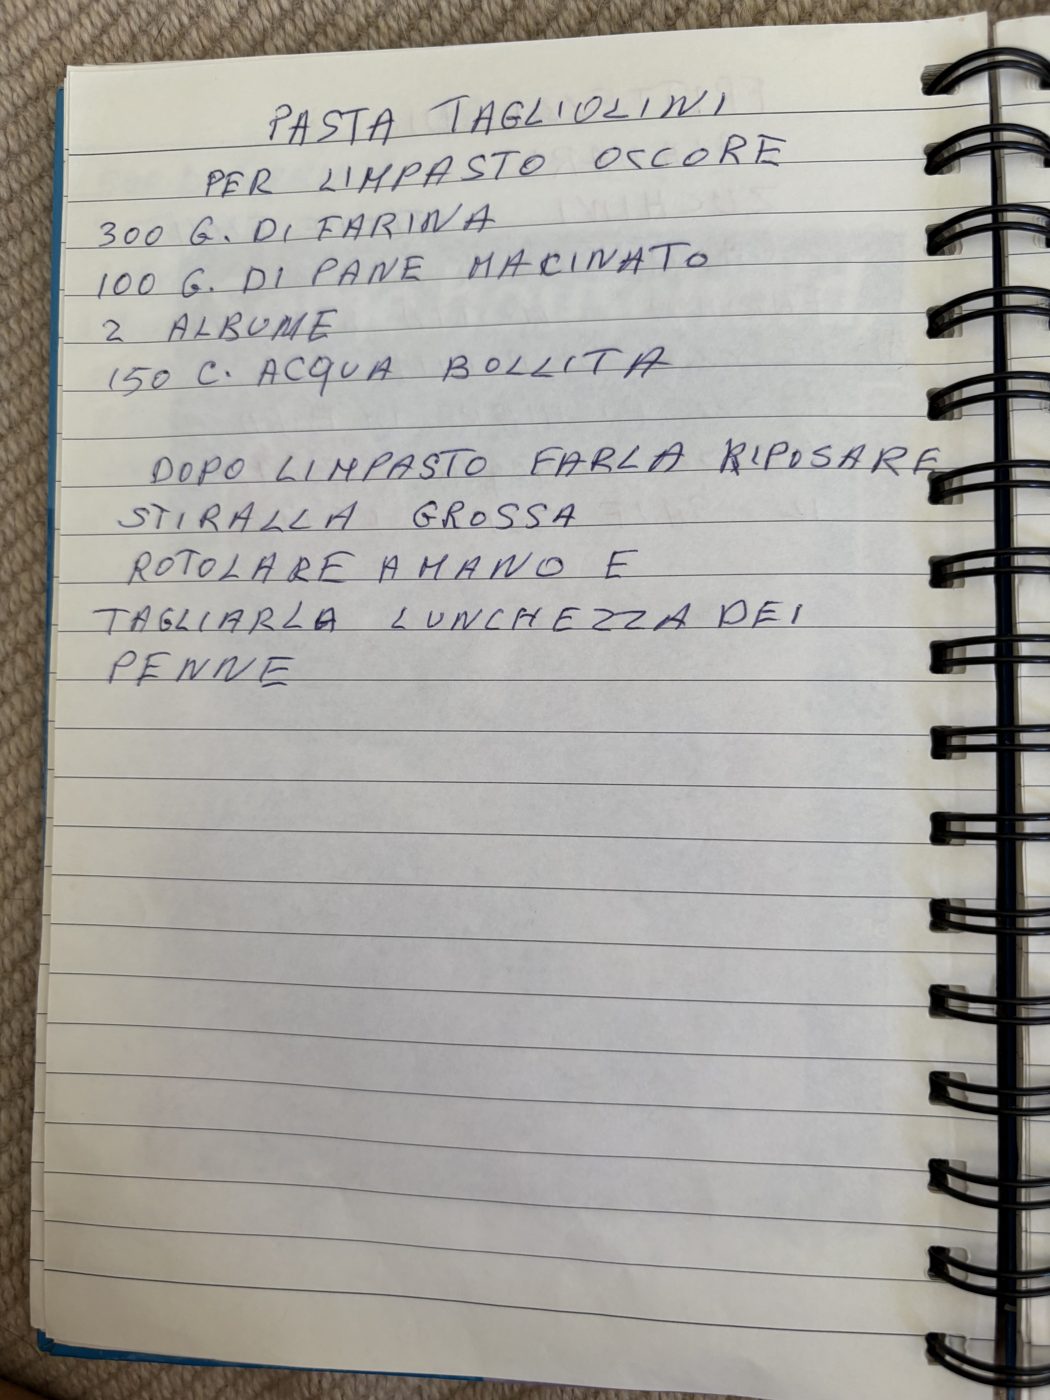 PASTA TAGLIOLINI
PER LIMPASTO OCCORE
300 G. DI FARINA
100 G. DI PANE MACINATO
2 ALBUME
150 C. ACQUA BOLLITA
DOPO LIMPASTO FARLA RIPOSARE
STIRALLA GROSSA
ROTOLARE A MANO E
TAGLIARLA LUNCHEZZA DEI
PENNE